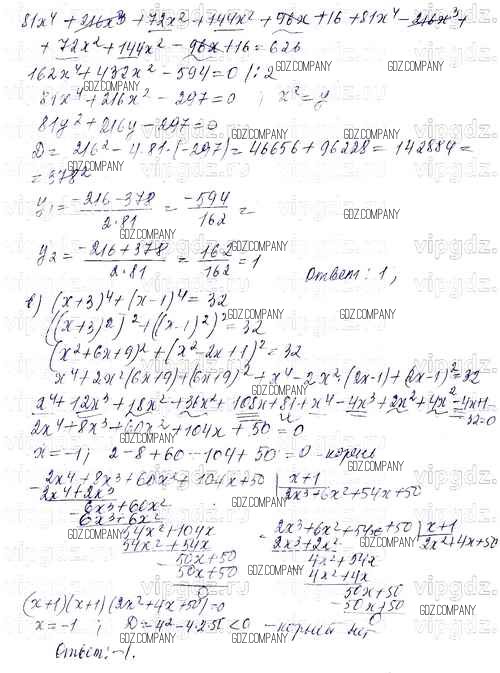 81x⁴ + 216x³ + 72x² + 144x² + 96x + 16 + 81x⁴ - 216x³ +
+ 72x² + 144x² - 96x + 16 = 626
162x⁴ + 432x² - 594 = 0 /: 2
81x⁴ + 216x² - 297 = 0 ; x² = y
81y² + 216y - 297 = 0
D = 216² - 4·81·(-297) = 46656 + 96228 = 142884 =
= 378²
y₁ = (-216 - 378)/(2·81) = -594/162 =
y₂ = (-216 + 378)/(2·81) = 162/162 = 1
Ответ: 1,
в) (x+3)⁴ + (x-1)⁴ = 32
((x+3)²)² + ((x-1)²)² = 32
(x² + 6x + 9)² + (x² - 2x + 1)² = 32
x⁴ + 2x²(6x+9) + (6x+9)² + x⁴ - 2x²(2x-1) + (2x-1)² = 32
x⁴ + 12x³ + 18x² + 36x² + 108x + 81 + x⁴ - 4x³ + 2x² + 4x² - 4x + 1
- 32 = 0
2x⁴ + 8x³ + 60x² + 104x + 50 = 0
x = -1; 2 - 8 + 60 - 104 + 50 = 0 - корень
2x⁴ + 8x³ + 60x² + 104x + 50 | x+1
2x⁴ + 2x³ 2x³ + 6x² + 54x + 50
6x³ + 60x²
6x³ + 6x²
54x² + 104x
54x² + 54x
50x + 50
50x + 50
0
2x³ + 6x² + 54x + 50 | x+1
2x³ + 2x² 2x² + 4x + 50
4x² + 54x
4x² + 4x
50x + 50
50x + 50
0
(x+1)(x+1)(2x² + 4x + 50) = 0
x = -1 ; D = 4² - 4·2·50 < 0 - корней нет
Ответ: -1.
GDZ.COMPANY
vipgdz.ru